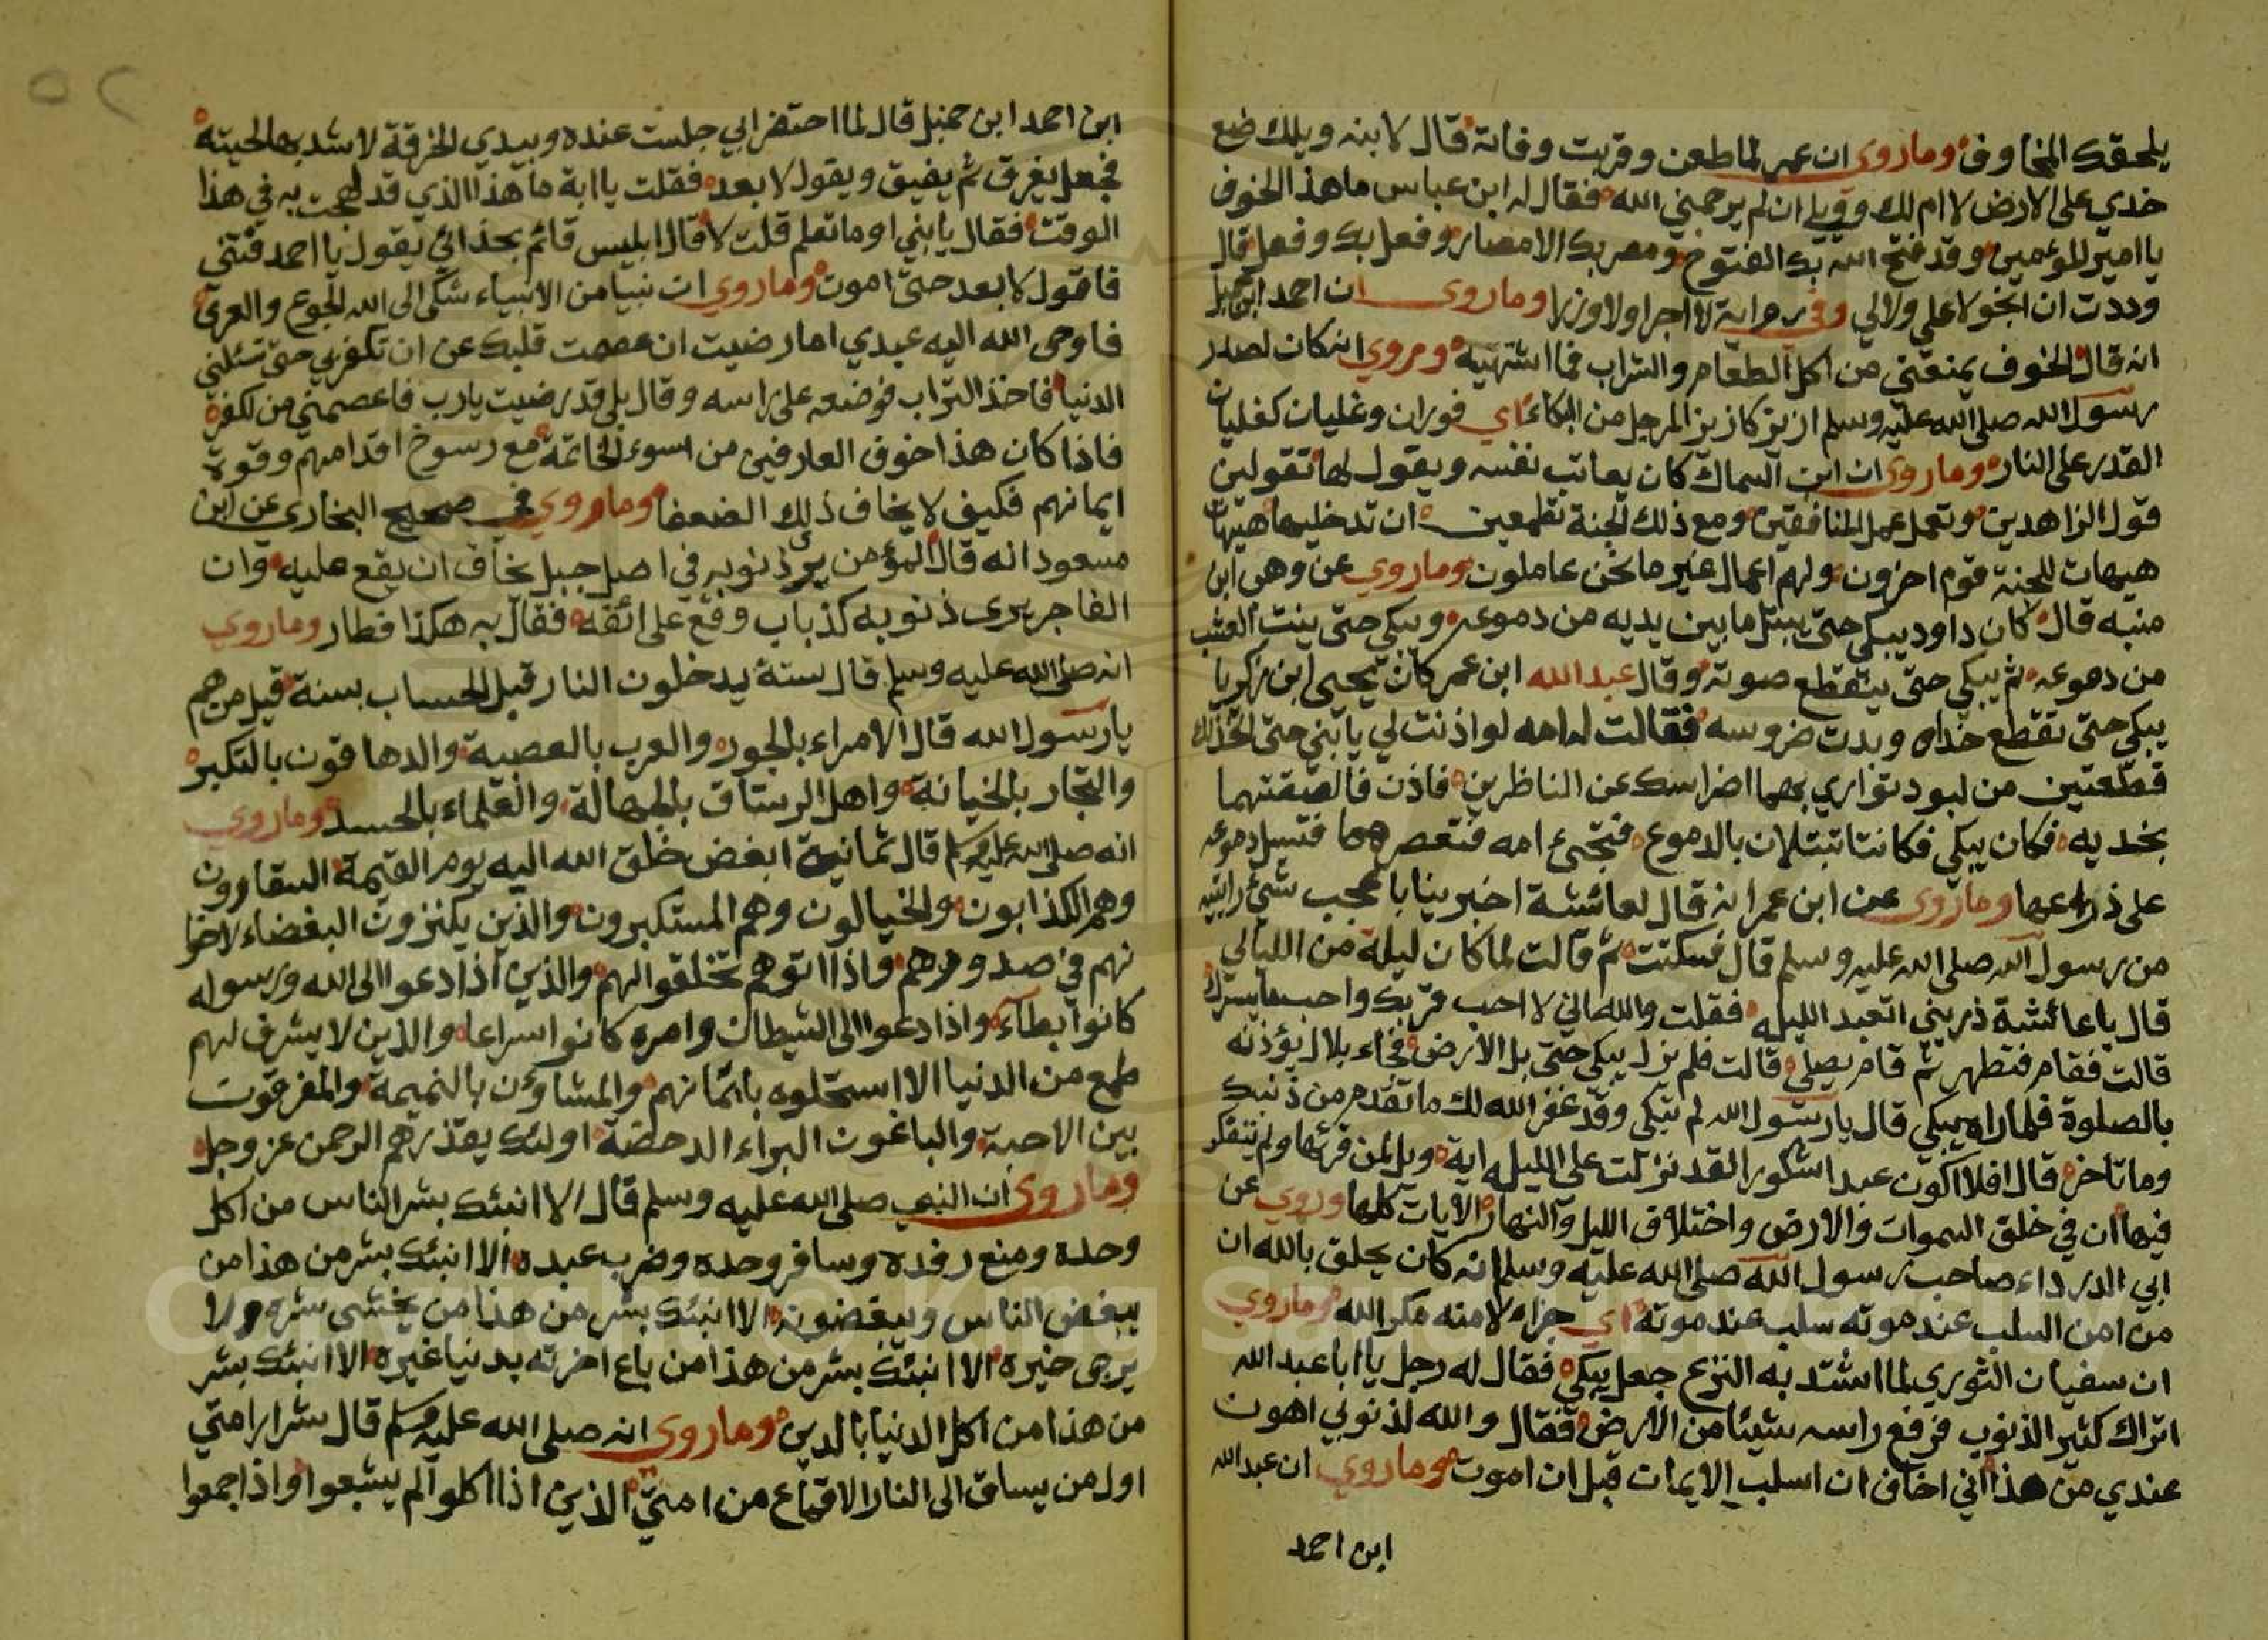 يلحقك المخاوف وماروى ان عمر لما طعن وقربت وفاته قال لابنه ويلك ضع
خدي على الارض لا ام لك وويلي ان لم يرحمني الله فقال له ابن عباس ما هذا الخوف
يا امير المؤمنين وقد فتح الله بك الفتوح ومصر بك الامصار وفعل بك وفعل قال
وددت ان انجو لا علي ولا لي وفي رواية لا اجرا ولا وزرا وماروى ان احمد ابن حنبل
انه قال الخوف يمنعني من اكل الطعام والشراب فما اشتهيه ومروي انه كان لصدر
رسول الله صلى الله عليه وسلم ازيز كازيز المرجل من البكاء اي فوران وغليان كغليان
القدر على النار وماروى ان ابن السماك كان يعاتب نفسه ويقول لها تقولين
قول الزاهدين وتعمل عمل المنافقين ومع ذلك الجنة تطمعين ان تدخليها هيهات
هيهات للجنة قوم اخرون ولهم اعمال غير ما نحن عاملون وماروي عن وهب ابن
منبه قال كان داود يبكي حتى يبتل ما بين يديه من دموعه ويبكي حتى ينبت العشب
من دموعه ثم يبكي حتى ينقطع صوته وقال عبد الله ابن عمر كان يحيى ابن زكريا
يبكي حتى تقطع خداه وبدت ضروسه فقالت له امه لو اذنت لي يا بني حتى اتخذ لك
قطعتين من لبود تواري بهما اضراسك عن الناظرين فاذن فالصقتهما
بخديه فكان يبكي فكانتا تبتلان بالدموع فتجئ امه فتعصرهما فتسيل دموعه
على ذراعها وماروى عن ابن عمر انه قال لعائشة اخبرينا باعجب شئ رايتيه
من رسول الله صلى الله عليه وسلم قال فسكتت ثم قالت لما كان ليلة من الليالي
قال يا عائشة ذريني اتعبد الليله فقلت والله اني لاحب قربك واحب ما يسرك
قالت فقام فتطهر ثم قام يصلي قالت فلم يزل يبكي حتى بل الارض فجاء بلال يؤذنه
بالصلوة فلما راه يبكي قال يا رسول الله لم تبكي وقد غفر الله لك ما تقدم من ذنبك
وما تاخر قال افلا اكون عبدا شكورا لقد نزلت علي الليله اية ويل لمن قرئها ولم يتفكر
فيها ان في خلق السموات والارض واختلاف الليل والنهار الايات كلها وروي عن
ابي الدرداء صاحب رسول الله صلى الله عليه وسلم انه كان يحلف بالله ان
من امن السلب عند موته سلب عند موته اي جزاء لامنه مكر الله وماروي
ان سفيان الثوري لما اشتد به النزع جعل يبكي فقال له رجل يا ابا عبد الله
اتراك كثير الذنوب فرفع راسه شيئا من الارض فقال والله لذنوبي اهون
عندي من هذا اني اخاف ان اسلب الايمان قبل ان اموت وماروي ان عبد الله
ابن احمد
٥٢
ابن احمد ابن حنبل قال لما احتضر ابي جلست عنده وبيدي الخرقة لاشد بها لحيته
فجعل يغرق ثم يفيق ويقول لا بعد فقلت يا ابة ما هذا الذي قد لهجت به في هذا
الوقت فقال يا بني او ما تعلم قلت لا قال ابليس قائم بحذائي يقول يا احمد فتني
فاقول لا بعد حتى اموت وماروي ان نبيا من الانبياء شكى الى الله الجوع والعري
فاوحى الله اليه عبدي اما رضيت ان عصمت قلبك عن ان تكفر بي حتى تسئلني
الدنيا فاخذ التراب فوضعه على راسه وقال بلى قد رضيت يا رب فاعصمني من الكفر
فاذا كان هذا خوف العارفين من اسوء الخاتمة مع رسوخ اقدامهم وقوة
ايمانهم فكيف لا يخاف ذلك الضعفا وماروي في صحيح البخاري عن ابن
مسعود انه قال المؤمن يرى ذنوبه في اصل جبل يخاف ان يقع عليه وان
الفاجر يرى ذنوبه كذباب وقع على انفه فقال به هكذا فطار وماروي
انه صلى الله عليه وسلم قال ستة يدخلون النار قبل الحساب بسنة قيل من هم
يا رسول الله قال الامراء بالجور والعرب بالعصبية والدهاقون بالتكبر
والتجار بالخيانة واهل الرستاق بالجهالة والعلماء بالحسد وماروي
انه صلى الله عليه وسلم قال ثمانية ابغض خلق الله اليه يوم القيمة السقارون
وهم الكذابون والخيالون وهم المستكبرون والذين يكنزون البغضاء لاخوا
نهم في صدورهم واذا اتوهم تخلقوا لهم والذين اذا دعوا الى الله ورسوله
كانوا بطآء واذا دعوا الى الشيطان وامره كانوا سراعا والذين لا يشرف لهم
طمع من الدنيا الا استحلوه بايمانهم والمشاؤن بالنميمة والمفرقون
بين الاحبة والباغون البراء الدحضة اولئك يقذرهم الرحمن عز وجل
وماروى ان النبي صلى الله عليه وسلم قال الا انبئك بشر الناس من اكل
وحده ومنع رفده وسافر وحده وضرب عبده الا انبئك بشر من هذا من
يبغض الناس ويبغضونه الا انبئك بشر من هذا من يخشى شره ولا
يرجى خيره الا انبئك بشر من هذا من باع اخرته بدنيا غيره الا انبئك بشر
من هذا من اكل الدنيا بالدين وماروى انه صلى الله عليه وسلم قال شرار امتي
اول من يساق الى النار الاقماع من امتي الذين اذا اكلوا لم يشبعوا واذا جمعوا